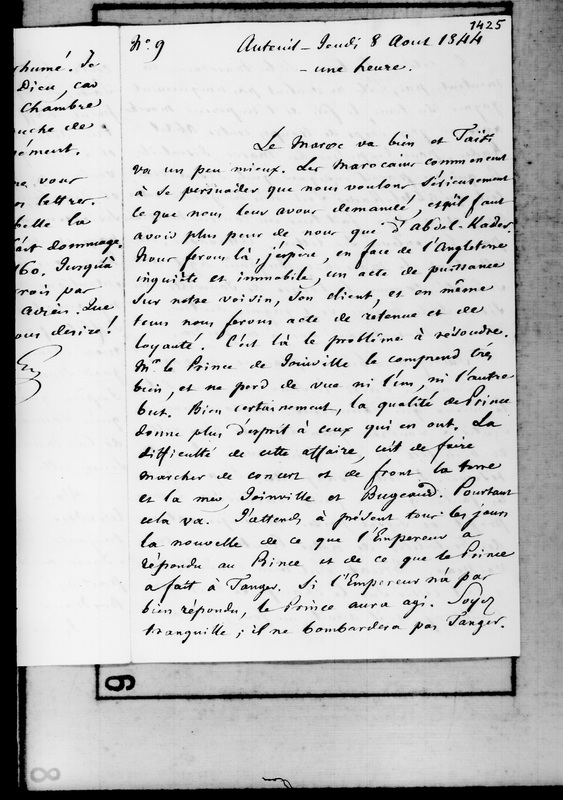 1425
N° 9 Auteuil - Jeudi 8 Août 1844
- une heure.
Le Maroc va bien et Taïti
va un peu mieux. Les marocains commencent
à se persuader que nous voulons sérieusement
ce que nous leur avons demandé, et qu'il faut
avoir plus peur de nous que d'Abdel-Kader.
Nous ferons là, j'espère, en face de l'Angleterre
inquiète et immobile, un acte de puissance
sur notre voisin, son client, et en même
tems nous ferons acte de retenue et de
loyauté. C'est là le problème à résoudre.
Mr. le Prince de Joinville le comprend très
bien, et ne perd de vue ni l'un, ni l'autre
but. Bien certainement, la qualité de Prince
donne plus d'esprit à ceux qui en ont. La
difficulté de cette affaire, c'est de faire
marcher de concert et de front la terre
et la mer Joinville et Bugeaud. Pourtant
cela va. J'attends à présent tous les jours
la nouvelle de ce que l'Empereur a
répondu au Prince et de ce que le Prince
a fait à Tanger. Si l'Empereur n'a pas
bien répondu, le Prince aura agi. Soyez
tranquille ; il ne bombardera pas Tanger.
rhumé. Je
Dieu, car
Chambre
uche de
ément.
vous
lettres.
belle la
fait dommage.
160. Jusqu'à
crois pas
adieu. Que
ous desire !
9
8